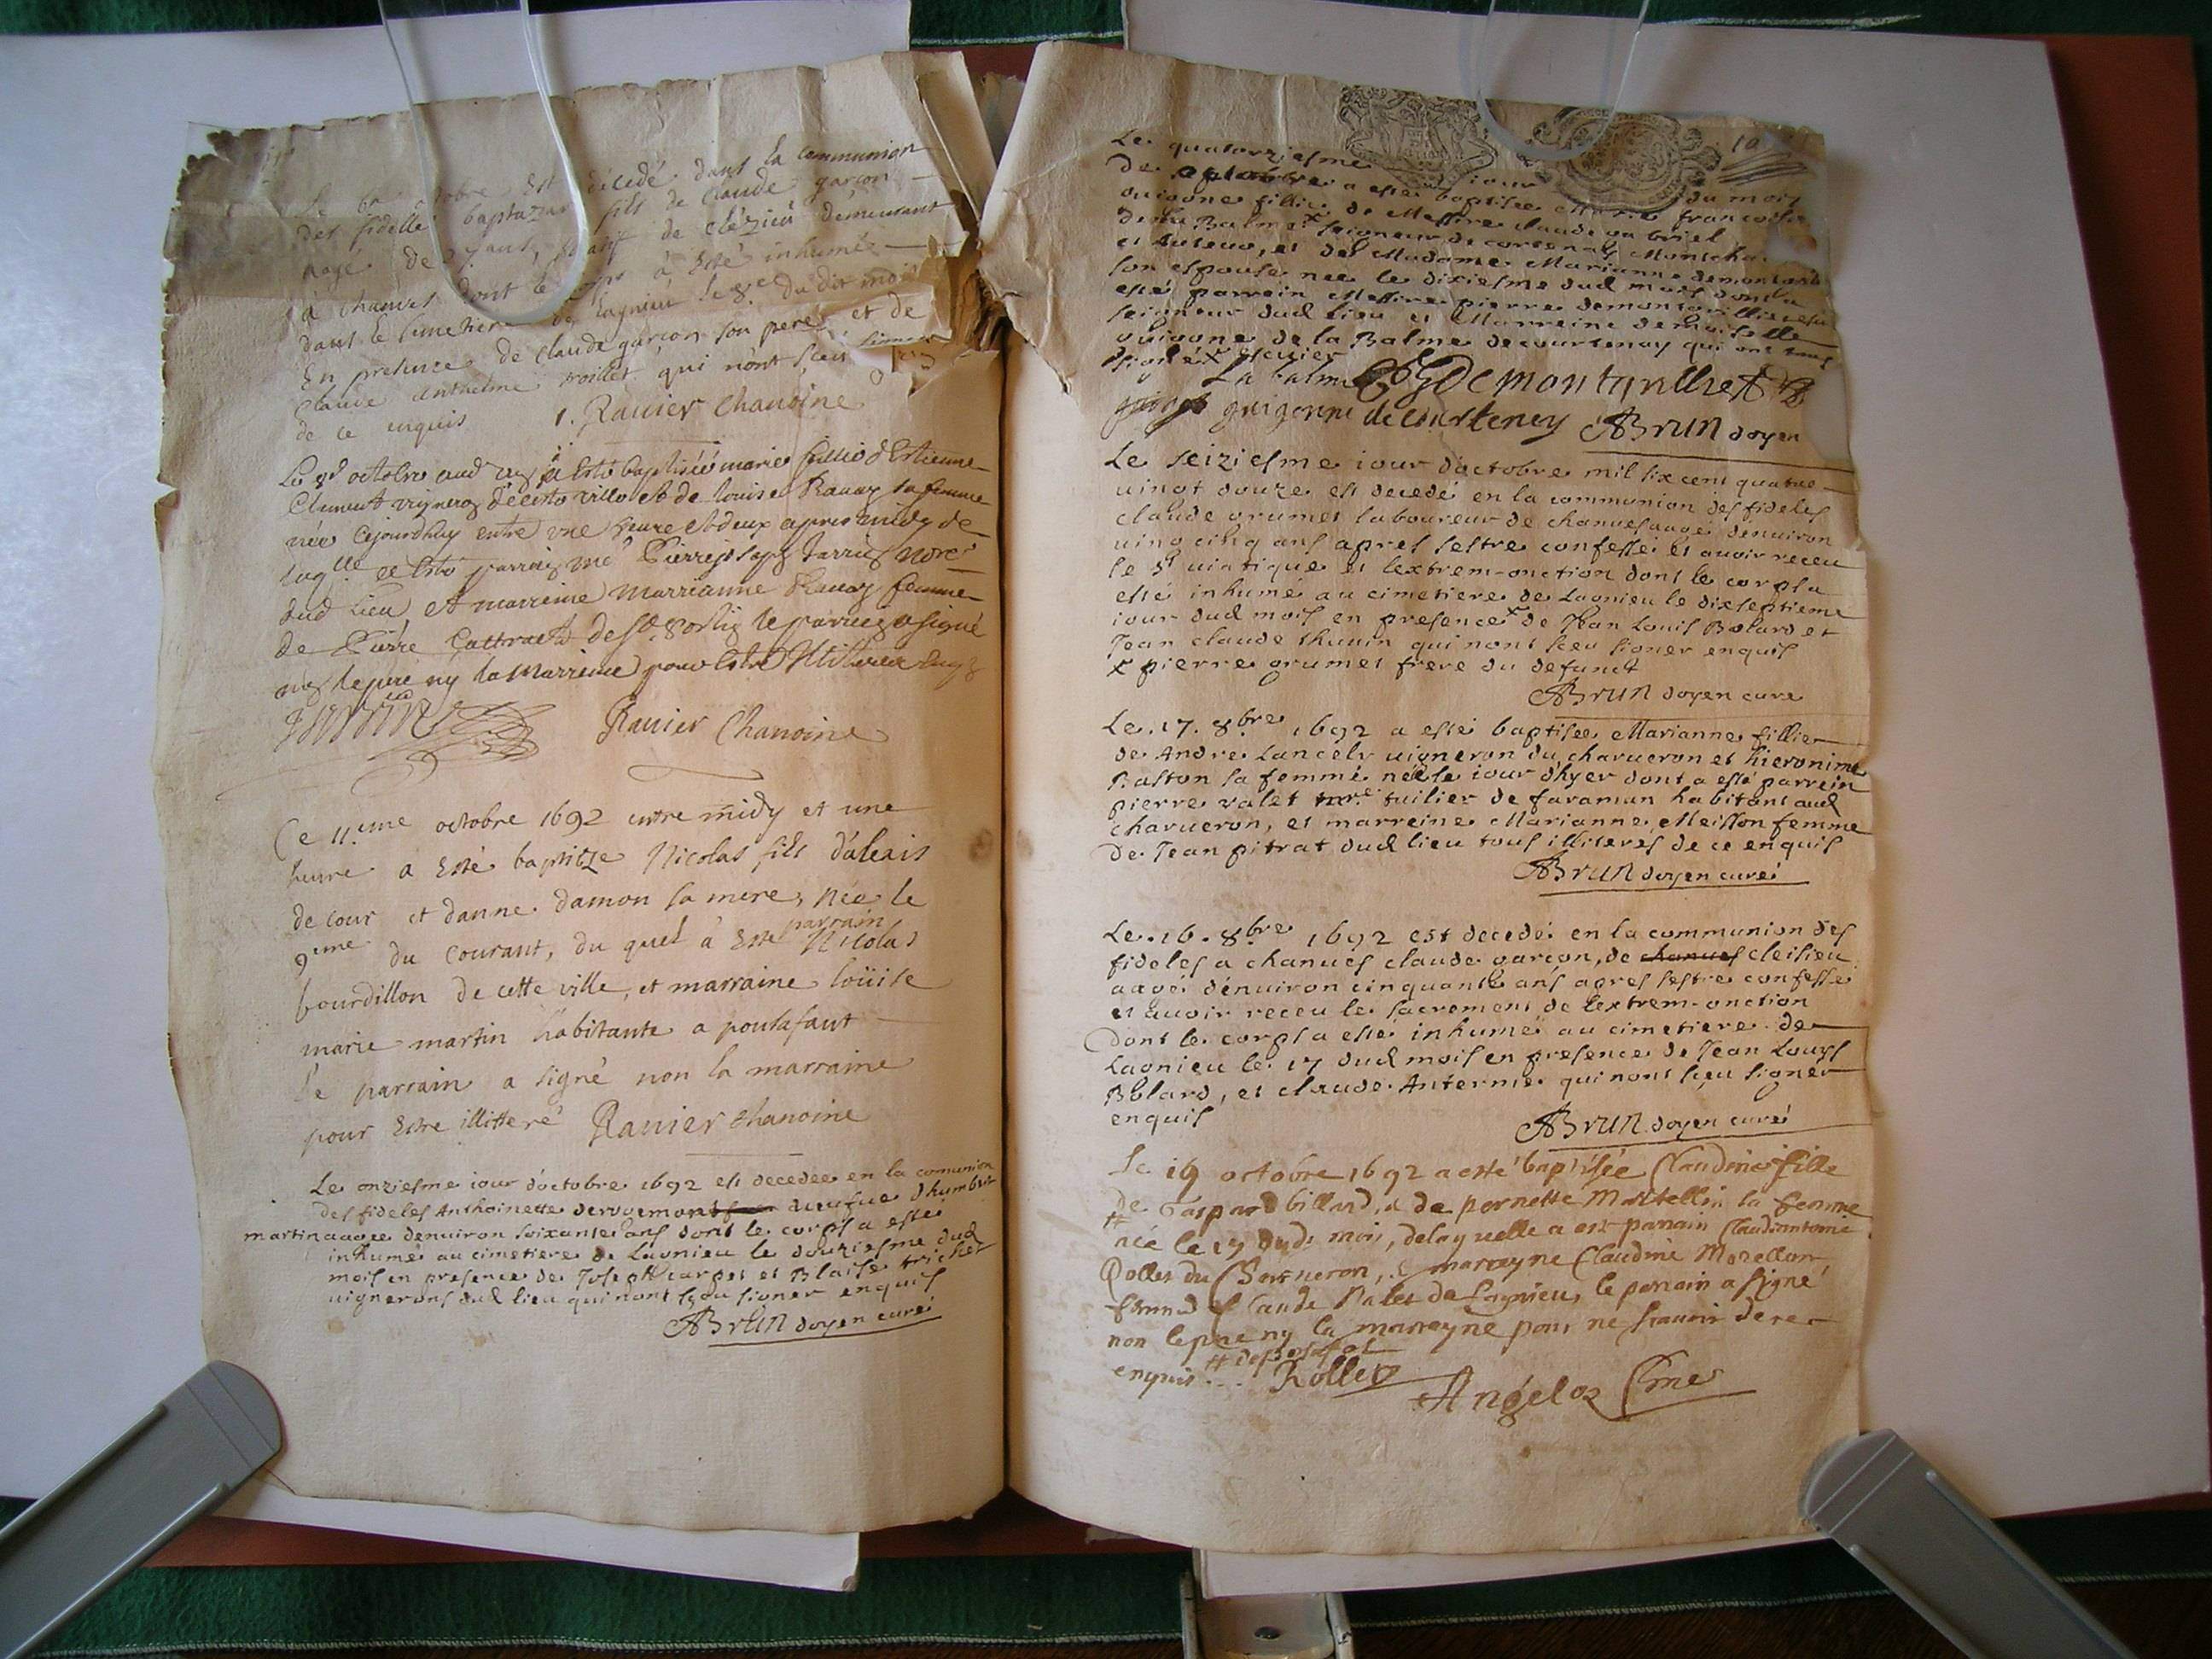 décedé dans la communion
des fidelle baptazar fils de Claude garçon
aagé de de clézieu demeurant
à Chanves dont le corps à esté inhumé
dans le cimetiere de Lagnieu le 8e du dit mois
En presence de claude garçon son pere et de
Claude Anthelme troillet qui n'ont sceu signer
de ce enquis 1. Ravier Chanoine
Le 8e octobre aud a esté baptisée marie fillie d'Estienne
Clement vigneron de cette ville et de louise Ravay sa femme
née cejourdhuy entre une heure et deux apres midy de
laqlle a esté parrain me Pierre Joseph
dud Lieu et marreine Marrianne Ravay femme
de Pierre de st Sorlin le parrein a signé
non le pere ny la Marreine pour estre
Ravier Chanoine
Ce 11.eme octobre 1692 entre midy et une
heure a esté baptize Nicolas fils d'alexis
de cour et d'anne damon sa mere, née le
parrain
9eme du Courant, du quel à esté Nicolas
bourdillon de cette ville, et marraine loüise
marie martin habitante a poulafaut
le parrain a signé non la marraine
pour estre illitteré Ravier Chanoine
Le onziesme iour d'octobre 1692 est decedée en la comunion
des fideles Anthoinette dervuemont veufue d'humbert
martin aagee denuiron soixante ans dont le corps a esté
inhumé au cimetiere de Lagnieu le douziesme dud
mois en presence de Joseph carget et Blaise trichet
uignerons dud lieu qui n'ont sçeu signer enquis
ABrun doyen curé
10
Le quatorziesme iour du mois
De octobre a esté baptisée Marie francoise
guigone fillie de Messire claude gabriel
de la Balme x seigneur de cortenay Montcha
et Auteuo, et de Madame Marianne demontaret
son espouse née le dixiesme dud mois dont a
esté parrein Messire pierre demontarillier
seigneur dud lieu et Marreine demoiselle
guigone de la Balme de courtenay qui ont tous
signé x escuier
La balme
guigonne de courteney ABrun doyen
Le seiziesme iour d'octobre mil six cent quatre
uingt douze est decedé en la communion des fideles
claude grumet laboureur de chanues aagé denuiron
uing cinq ans apres sestre confessé et auoir receu
le st uiatique et lextrem-onction dont le corps a
esté inhumé au cimetiere de Lagnieu le dixseptieme
iour dud mois en presence x de Jean Louis Bolard et
Jean claude thunin qui n'ont sceu signer enquis
x pierre grumet frere du defunct
ABrun doyen curé
Le .17. 8bre 1692 a esté baptisée Marianne fillie
de Andre Lancely uigneron du charueron et hieronime
Baston sa femme née le iour d'hyer dont a esté parrein
pierre valet tuilier de faraman habitant aud
charueron, et marreine Marianne Meillon femme
de Jean pitrat dud lieu tous illiteres de ce enquis
ABrun doyen curé
Le .16. 8bre 1692 est decedé en la communion des
fideles a chanues claude garçon, de chanues cleisieu
aagé denuiron cinquante ans apres sestre confessé
et auoir receu le sacrement de lextrem-onction
dont le corps a esté inhumé au cimetiere de
Lagnieu le 17 dud mois en presence de Jean Louys
Bolard, et claude Anterme qui n'ont sçeu signer
enquis
ABrun doyen curé
Le 19 octobre 1692 a esté baptisée Claudine fille
de Gaspard billard, & de pernette Martellin sa femme
née le 17 dud. mois, de laquelle a est parrain Claud antoine
Rollet du Charneron, & marrayne Claudine Morellon,
femme de Claude Valet de Lagnieu, le parrain a signé
non le pere ny la marrayne pour ne sçauoir de ce
enquis
Rollet
Angéloz Cme